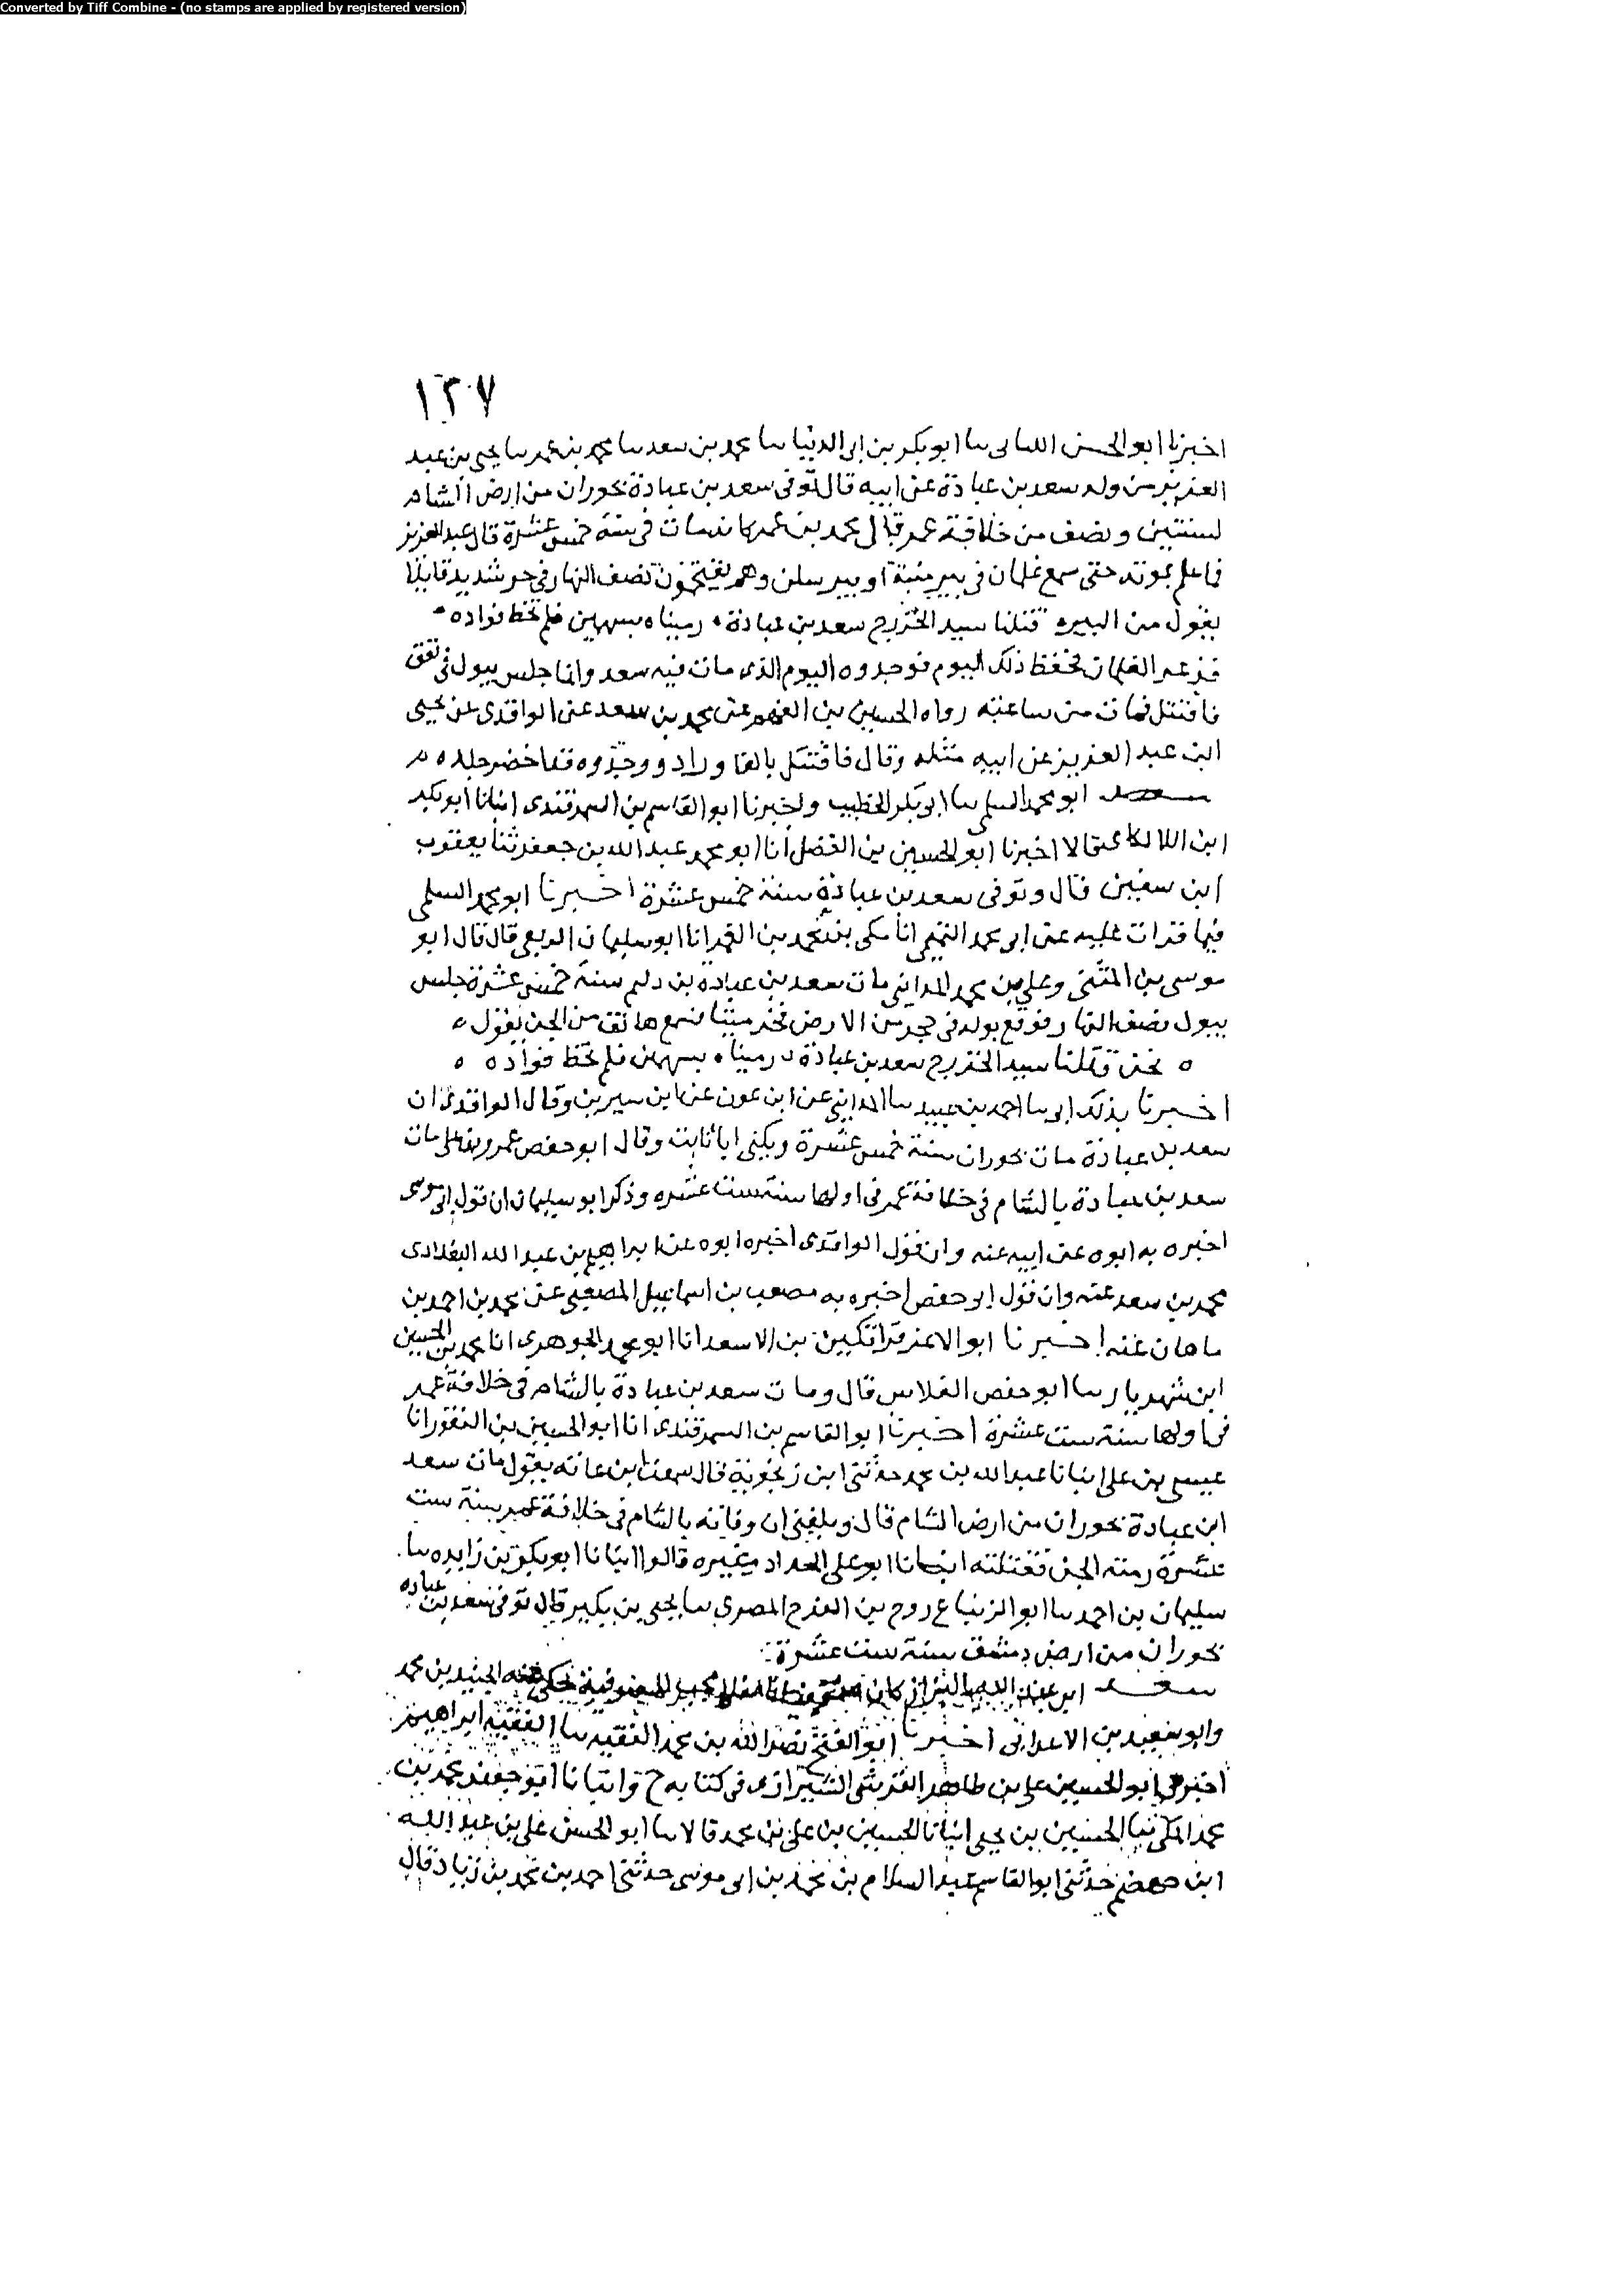 Converted by Tiff Combine - (no stamps are applied by registered version)
١٢٧
اخبرنا ابو الحسن اللبنانى سا ابو بكر بن ابى الدنيا سا محمد بن سعد سا محمد بن عمر سا يحيى بن عبد
العزيز من ولد سعد بن عبادة عن ابيه قال توفى سعد بن عبادة بحوران من ارض الشام
لسنتين ونصف من خلافة عمر قال محمد بن عمر كانه مات فى سنة خمس عشرة قال عبد العزيز
فما علم بموته حتى سمع غلمان فى بير منبة او بير سكن وهم يقتحمون نصف النهار فى حر شديد قايلا
يقول من البير قتلنا سيد الخزرج سعد بن عبادة رميناه بسهمين فلم تخط فواده
فذعر الغلمان فحفظ ذلك اليوم فوجدوه اليوم الذى مات فيه سعد وانما جلس يبول فى نفق
فاقتتل فمات من ساعته رواه الحسين بن الفهم عن محمد بن سعد عن الواقدى عن يحيى
ابن عبد العزيز عن ابيه مثله وقال فاقتتل بالفا وزاد ووجدوه قد اخضر جلده
ابو محمد السلمى سا ابو بكر الخطيب واخبرنا ابو القاسم بن السمرقندى انبانا ابو بكر
ابن اللالكاى قالا اخبرنا ابو الحسين بن الفضل انا ابو محمد عبد الله بن جعفر ثنا يعقوب
ابن سفين قال وتوفى سعد بن عبادة سنة خمس عشرة اخبرنا ابو محمد السلمى
فيما قرات عليه عن ابى محمد التميمى انا مكى بن محمد بن الغمر انا ابو سليمان الربعى قال قال ابو
موسى بن المثنى وعلى بن محمد المداينى مات سعد بن عبادة بن دليم سنة خمس عشرة جلس
يبول نصف النهار فوقع بوله فى جحر من الارض فخر ميتا فسمع هاتف من الجن يقول ه
ه نحن قتلنا سيد الخزرج سعد بن عبادة رميناه بسهمين فلم تخط فواده ه
اخبرنا بذلك ابى سا احمد بن عبيد سا المداينى عن ابن عون عن ابن سيرين وقال الواقدى ان
سعد بن عبادة مات بحوران سنة خمس عشرة ويكنى ابا ثابت وقال ابو حفص عمرو بن على مات
سعد بن عبادة بالشام فى خلافة عمر فى اولها سنة ست عشره وذكر ابو سليمان ان قول ابى موسى
اخبره به ابوه عن ابيه عنه وان قول الواقدى اخبره ابوه عن ابراهيم بن عبد الله البغدادى
محمد بن سعد عنه وان قول ابو حفص اخبره به مصعب بن اسماعيل المصيصى عن محمد بن احمد بن
ماهان عنه اخبرنا ابو الاعز قراتكين بن الاسعد انا ابو محمد الجوهرى انا محمد بن الحسين
ابن شهريار سا ابو حفص الفلاس قال ومات سعد بن عبادة بالشام فى خلافة عمر
فى اولها سنة ست عشرة اخبرنا ابو القاسم بن السمرقندى انا ابو الحسين بن النقور انا
عيسى بن على انبانا عبد الله بن محمد حدثنى ابن زنجوية قال سمعت ابن عائه يقول مات سعد
ابن عبادة بحوران من ارض الشام قال وبلغنى ان وفاته بالشام فى خلافة عمر سنة ست
عشرة رمته الجن فقتلته انبانا ابو على الحداد وغيره قالوا انبانا ابو بكر بن زايده سا
سليمان بن احمد سا ابو الزنباع روح بن الفرج المصرى سا يحيى بن بكير قال توفى سعد بن عباده
بحوران من ارض دمشق سنة ست عشرة
سعد ابن عبد الله البزاز كان الصوفية حكى عنه الجنيد بن محمد
وابو سعيد بن الاعرابى اخبرنا ابو الفتح نصر الله بن محمد الفقيه سا الفقيه ابراهيم
اخبرنى ابو الحسين على بن طاهر القرشى الشيرازى فى كتابه ح وانبانا ابو جعفر محمد بن
محمد المكى ثنا الحسين بن يحيى انبانا الحسين بن على بن محمد قالا سا ابو الحسن على بن عبد الله
ابن جهضم حدثنى ابو القاسم عبد السلام بن محمد بن ابى موسى حدثنى احمد بن محمد بن زياد قال